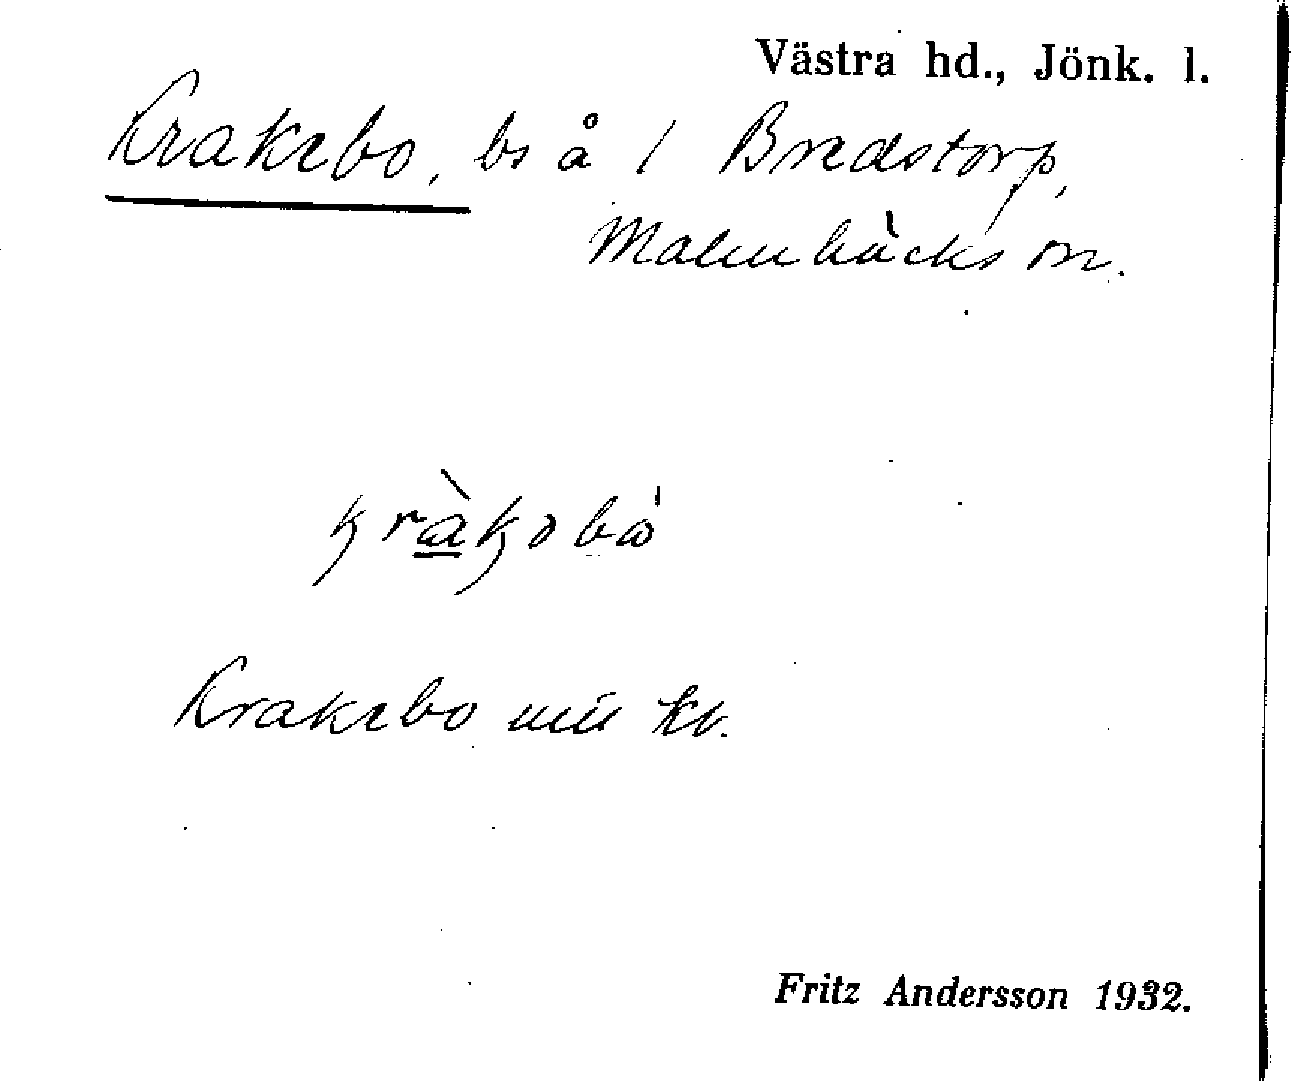 Västra hd., Jönk. l.
Krakebo, bs å 1 Bredstorp,
Malmbäcks sn.
Krakebo
Fritz Andersson 1932.